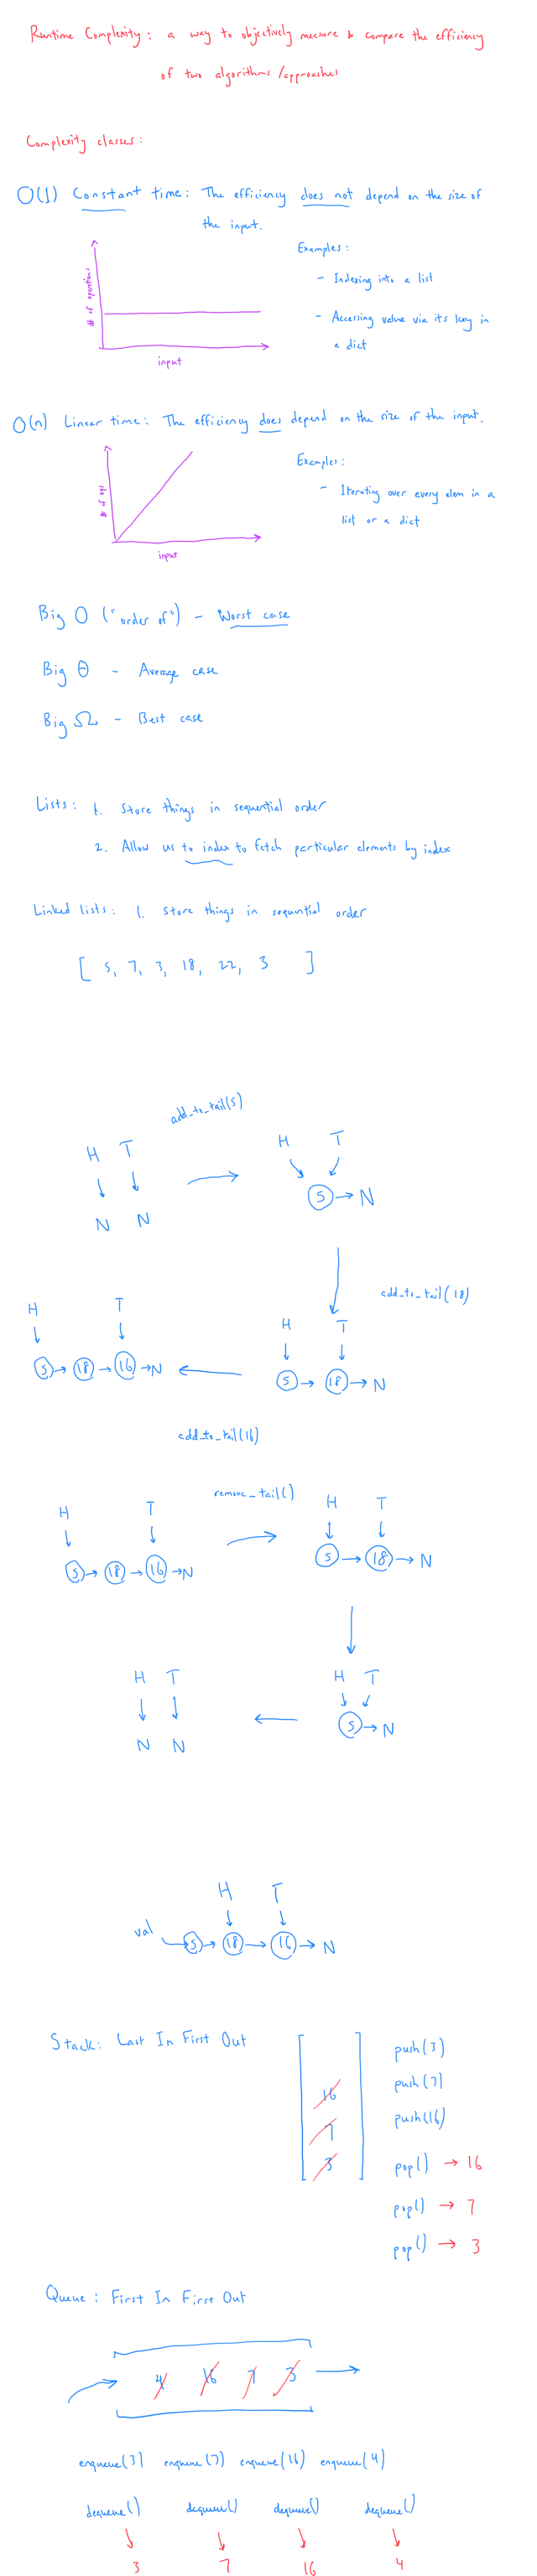 Runtime Complexity: a way to objectively measure & compare the efficiency
of two algorithms/approaches
Complexity classes:
O(1) Constant time: The efficiency does not depend on the size of
the input.
Examples:
- Indexing into a list
- Accessing value via its key in
a dict
# of operations
input
O(n) Linear time: The efficiency does depend on the size of the input.
Examples:
- Iterating over every elem in a
list or a dict
# of ops
input
Big O ("order of") - Worst case
Big Θ - Average case
Big Ω - Best case
Lists: 1. Store things in sequential order
2. Allow us to index to fetch particular elements by index
Linked lists: 1. Store things in sequential order
[ 5, 7, 3, 18, 22, 3 ]
add_to_tail(5)
H T
N N
H T
5 → N
add_to_tail(18)
H T
5 → 18 → N
H T
5 → 18 → 16 → N
add_to_tail(16)
remove_tail()
H T
5 → 18 → 16 → N
H T
5 → 18 → N
H T
5 → N
H T
N N
H T
val → 5 → 18 → 16 → N
Stack: Last In First Out
16
7
3
push(3)
push(7)
push(16)
pop() → 16
pop() → 7
pop() → 3
Queue: First In First Out
4 16 7 3
enqueue(3) enqueue(7) enqueue(16) enqueue(4)
dequeue() dequeue() dequeue() dequeue()
3 7 16 4